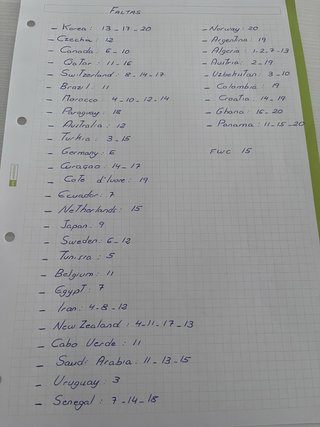 FALTAS
- Korea: 13-17-20
- Czechia: 12
- Canada: 6-10
- Qatar: 11-16
- Switzerland: 8-14-17
- Brazil: 11
- Morocco: 4-10-12-14
- Paraguay: 18
- Australia: 12
- Turkia: 3-15
- Germany: 6
- Curaçao: 14-17
- Cote d'Ivore: 19
- Ecuador: 7
- Netherlands: 15
- Japan: 9
- Sweden: 6-12
- Tunisia: 5
- Belgium: 11
- Egypt: 7
- Iran: 4-8-12
- New Zealand: 4-11-17-13
- Cabo Verde: 11
- Saudi Arabia: 11-13-15
- Uruguay: 3
- Senegal: 7-14-18
- Norway: 20
- Argentina: 19
- Algeria: 1-2-7-13
- Austria: 2-19
- Uzbekistan: 3-10
- Colombia: 19
- Croatia: 14-19
- Ghana: 16-20
- Panama: 11-15-20
FWC 15